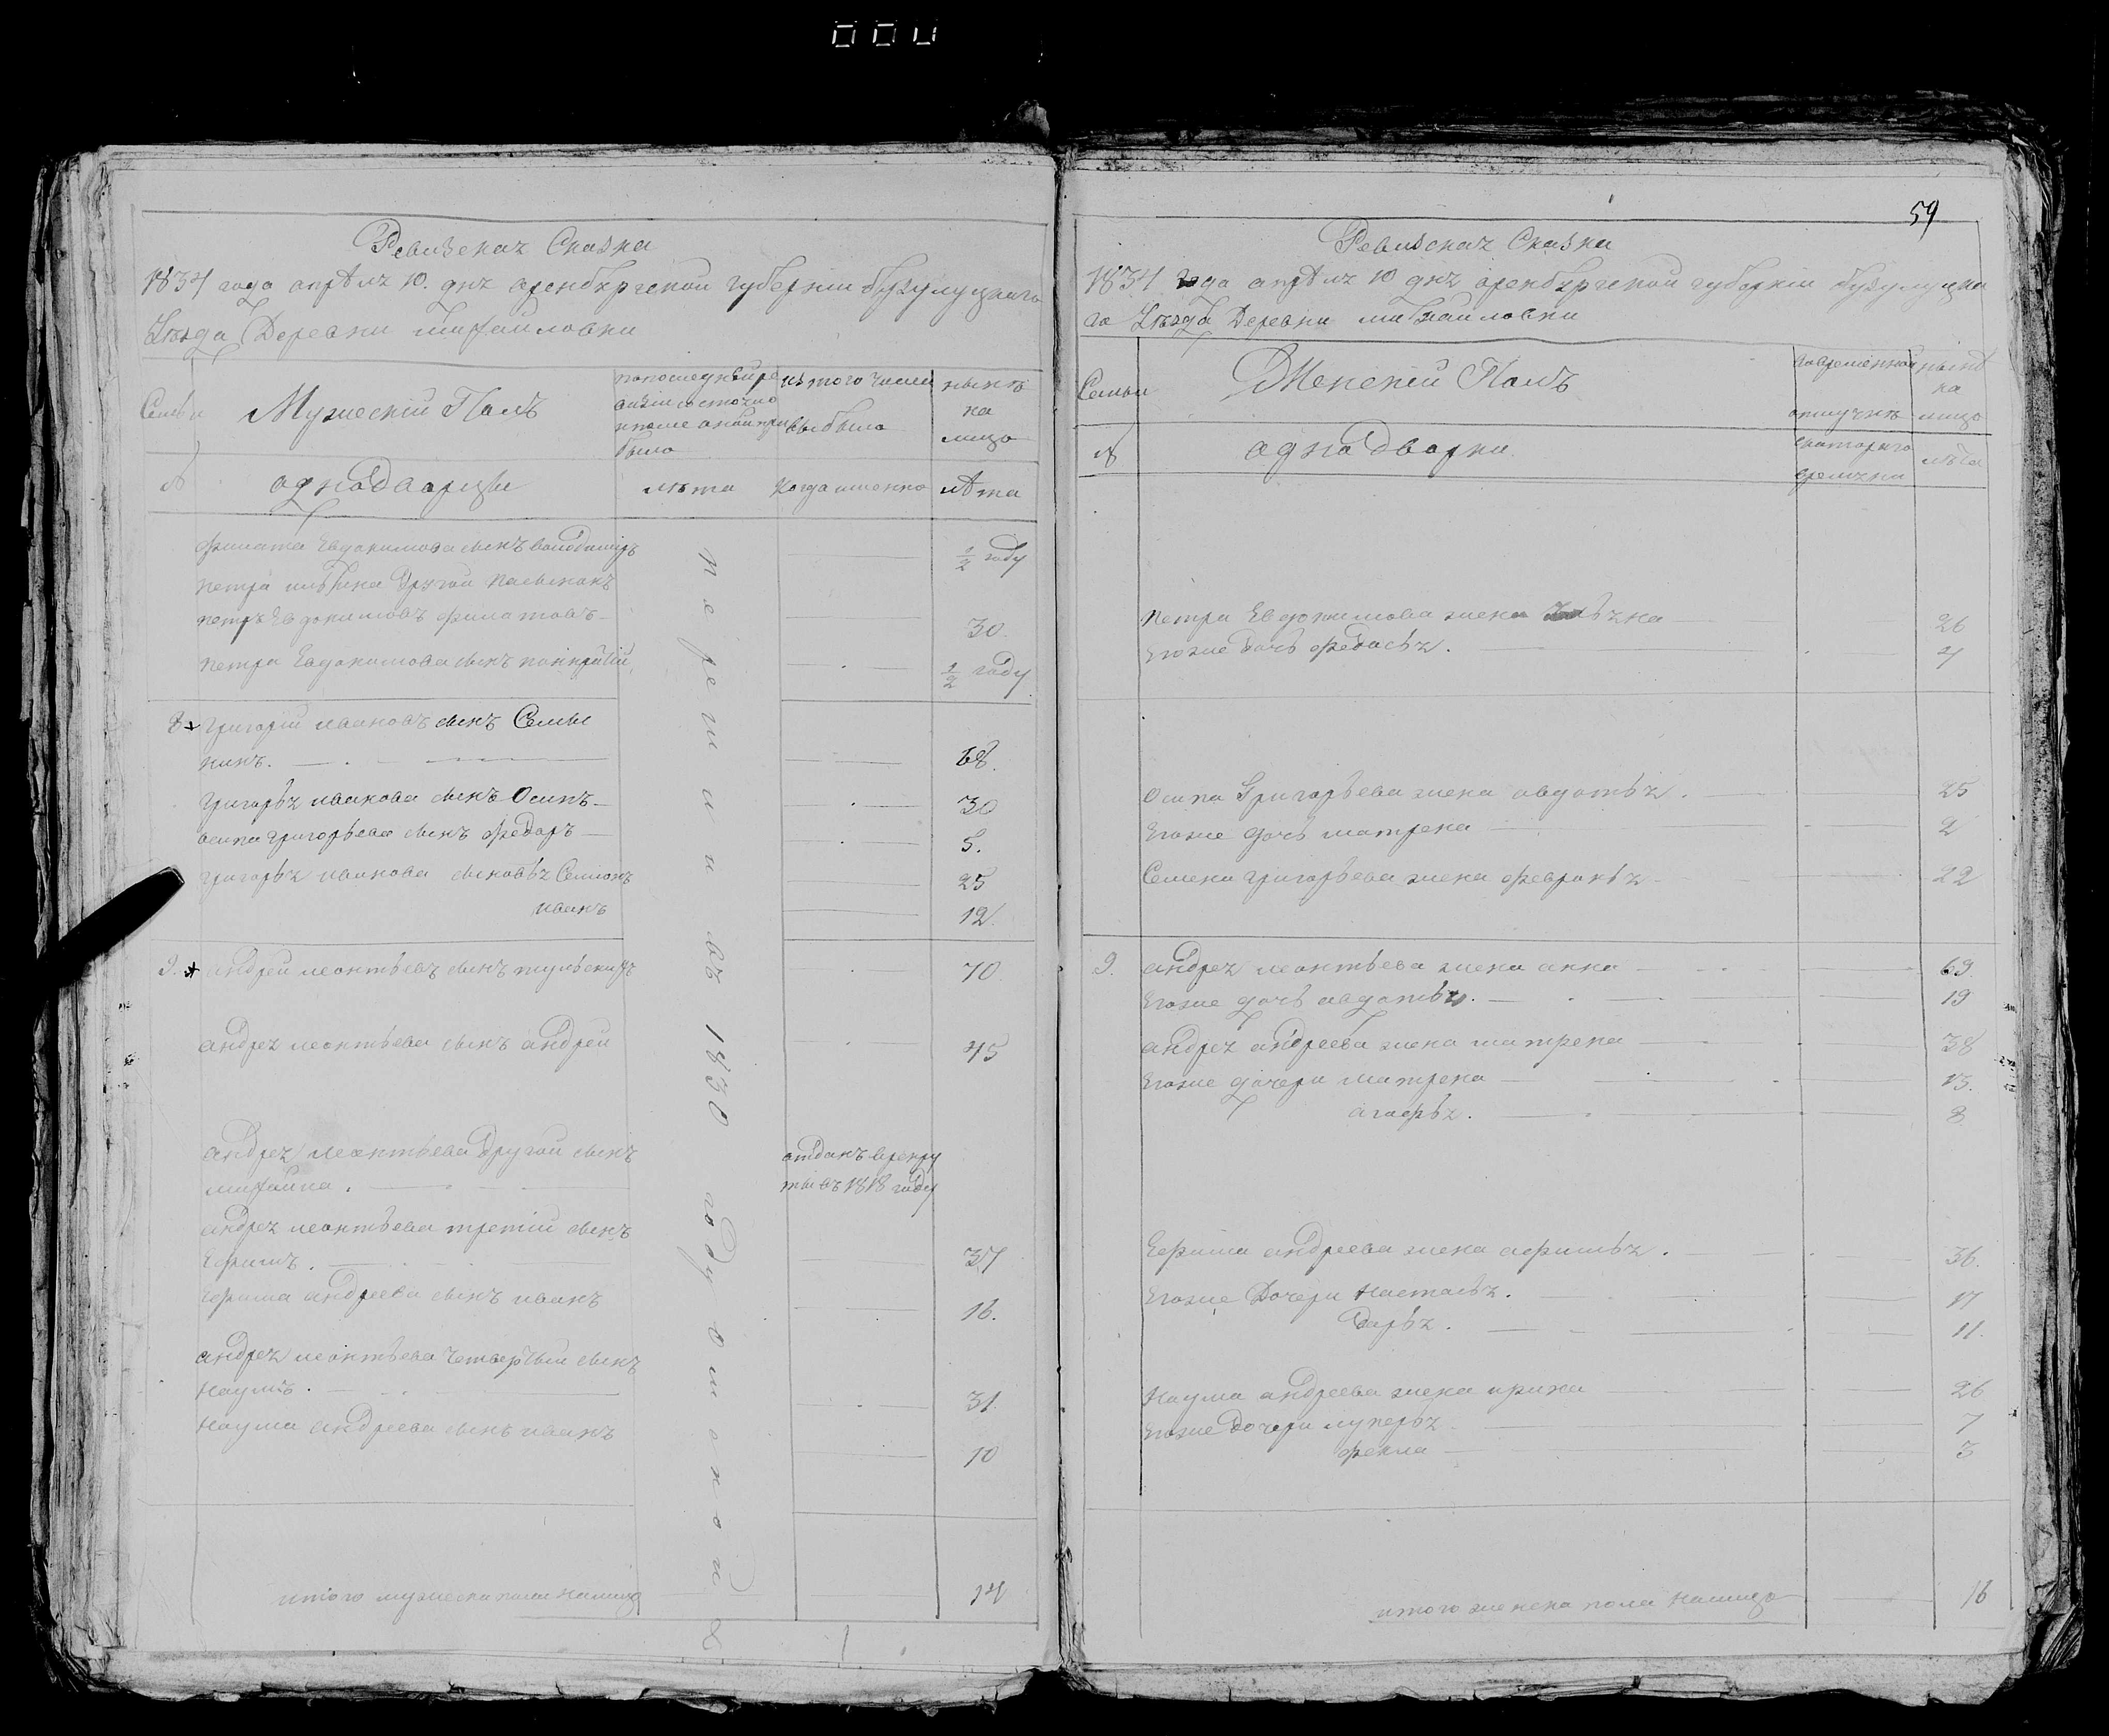 Ревизская Сказка
1834 года апрѣля 10. дня оренбургской губерніи бузулуцкаго
Уѣзда Деревни михайловки
Семьи
Мужескій Полъ
попоследнѣй ре
визіи состояло
ипосле оной при
было
изтого числа
выбыло
нынѣ
на
лицо
№
однодворцы
лѣта
когда именно
лѣта
филата Евдокимова сынъ володимиръ
½ году
петра другой пасынокъ
петръ Евдокимовъ филатовъ
30.
петра Евдокимова сынъ
½ году
перешли въ 1830 году
8
григорій ивановъ сынъ Семы
нинъ.
68.
григорья иванова сынъ Осипъ
30
осипа григорьева сынъ федоръ
5.
григорья иванова сыновья Семионъ
25
иванъ
12
9.
андрей леонтьевъ сынъ
70
андрея леонтьева сынъ андрей
45
андрея леонтьева другой сынъ
михайла.
отданъ врекру
ты въ 1818 году
андрея леонтьева третій сынъ
Ефимъ.
37
Ефима андреева сынъ иванъ
16.
андрея леонтьева четвертый сынъ
наумъ.
31.
наума андреева сынъ иванъ
10
итого мужеска пола налицо
14
59
Ревизская Сказка
1834 года апрѣля 10 дня оренбургской губерніи бузулуцка
го Уѣзда Деревни михайловки
Семьи
Женскій Полъ
вовременной
отлучкѣ
нынѣ
на
лицо
№
однодворки
скотораго
времяни
лѣта
петра Евдокимова жена
26
Егоже дочь федосья.
4
Осипа Григорьева жена авдотья.
25
Егоже дочь матрена
2
Семена григорьева жена февронья
22
9.
андрея леонтьева жена анна
69.
Егоже дочь авдотья.
19
андрея андреева жена матрена
38
Егоже дочери матрена
13.
агафья.
8
Ефима андреева жена афимья.
36.
Егоже дочери настасья.
17
дарья.
11.
наума андреева жена ирина
26
Егоже дочери лукерья
7
фекла
3
итого женска пола налицо
16